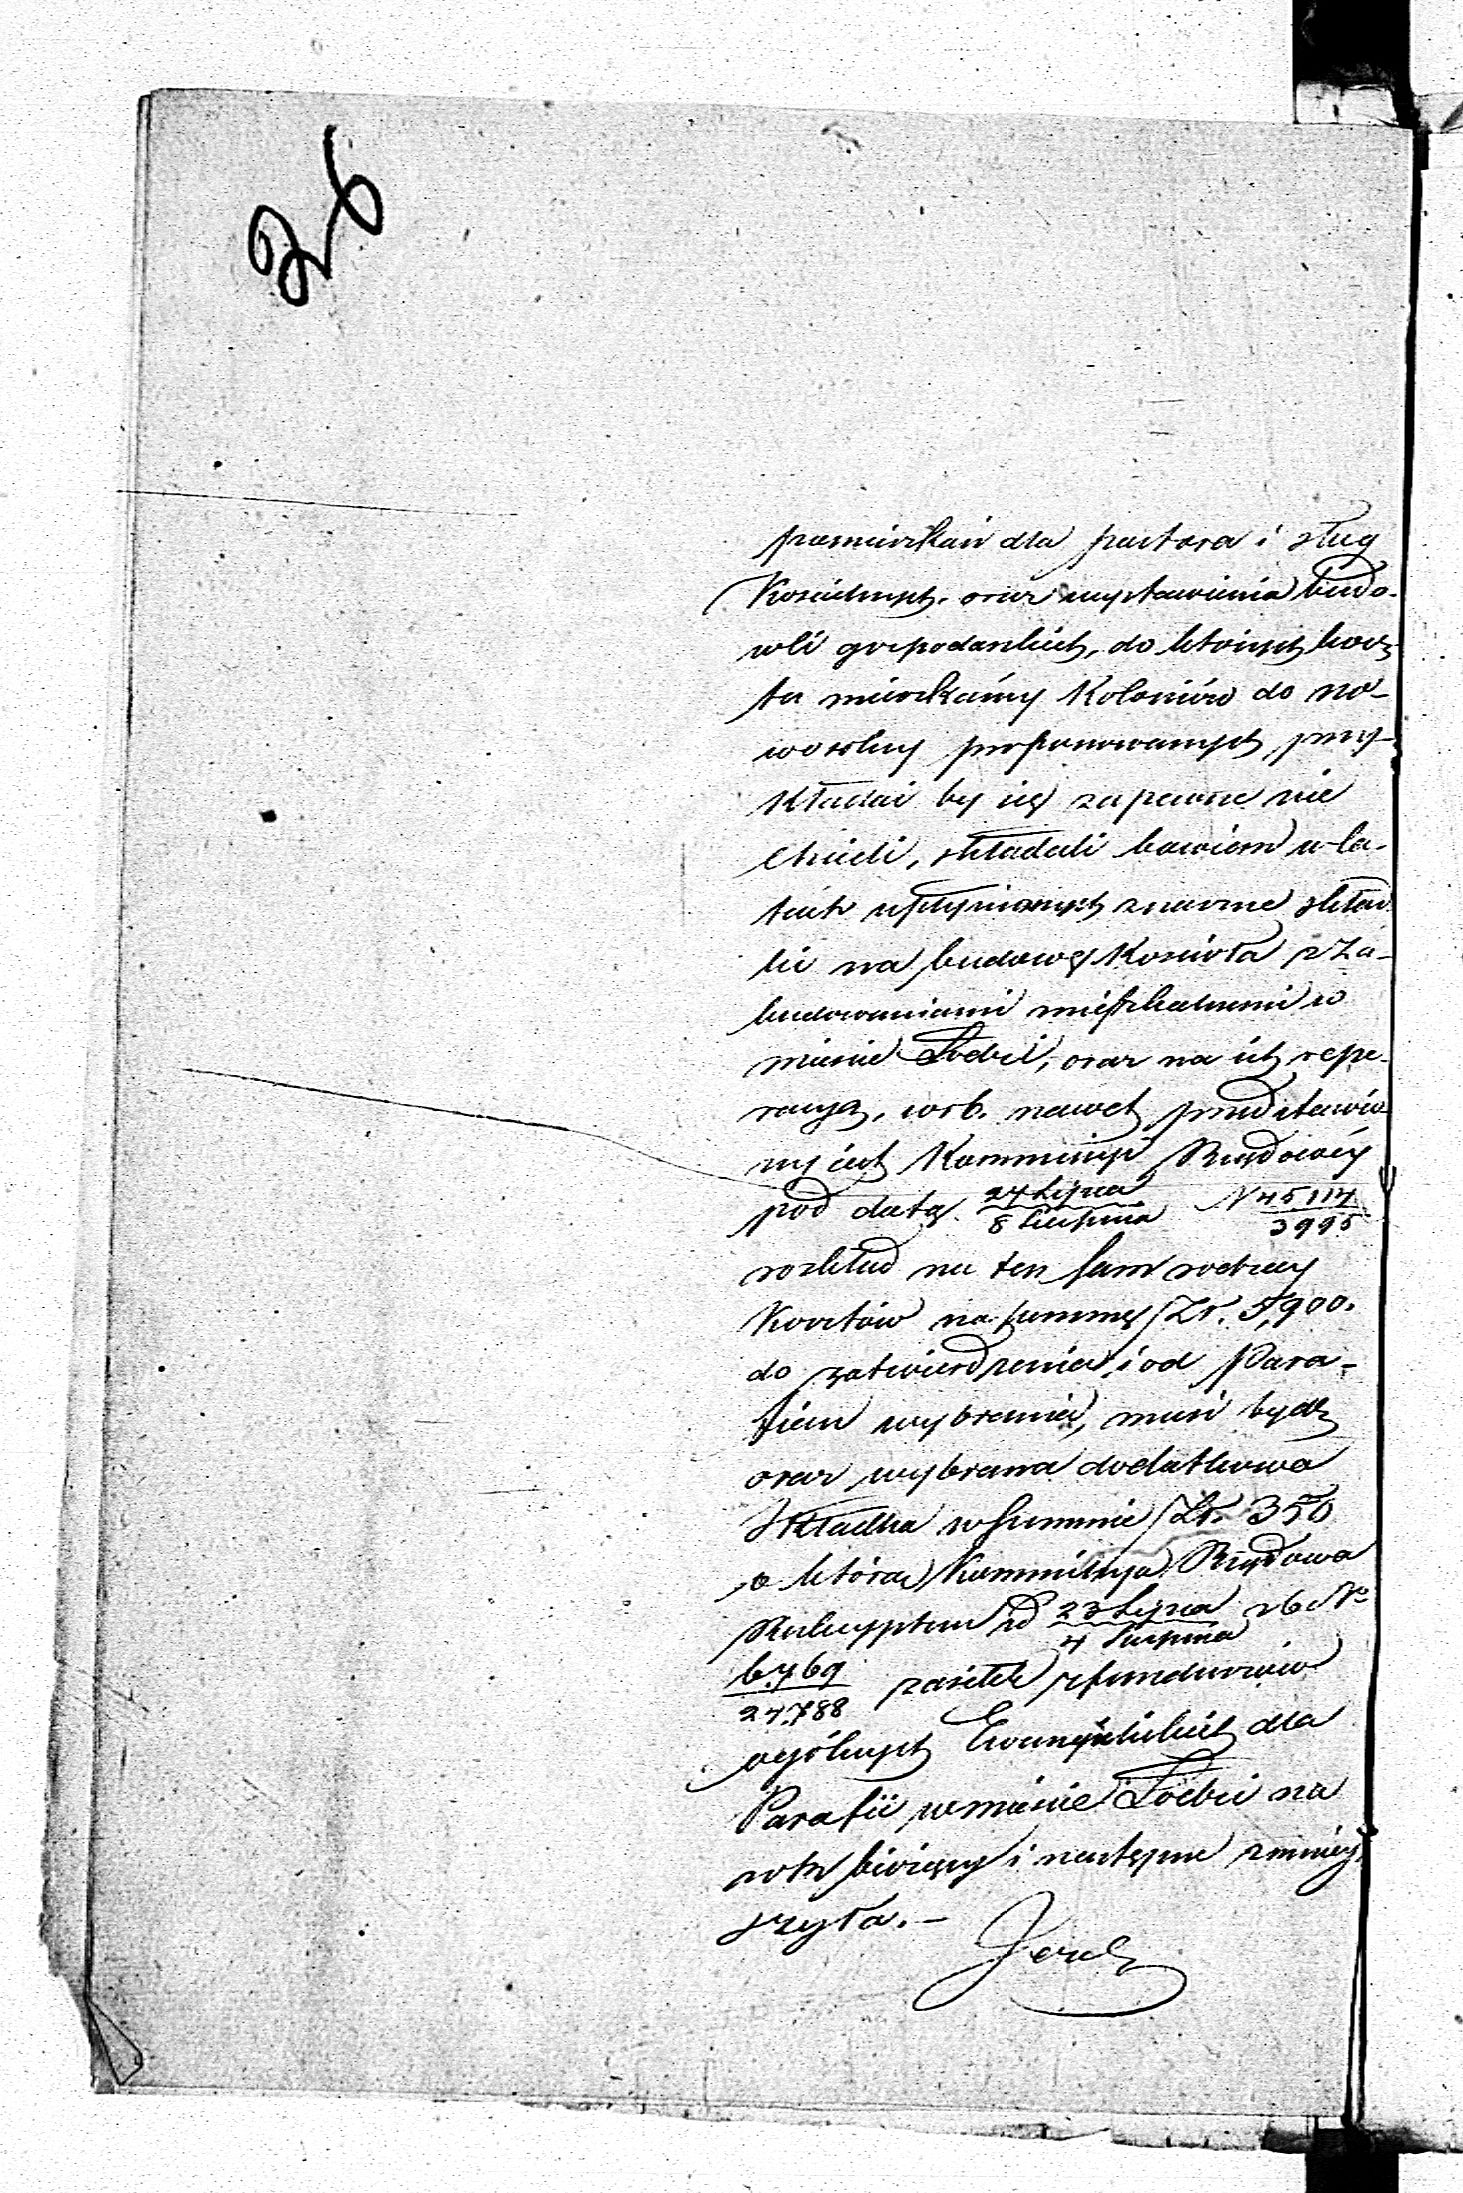 26
pomieszkań dla pastora i sług
Kościelnych, oraz wystawienia budo-
wli gospodarskich, do których kosz-
tu mieszkańcy Koloniów do no-
wosolny proponowanych, przy-
kładać by się zapewne nie
chcieli, składali bowiem w la-
tach upłynionych znaczne skład-
ki na budowę Kościoła z Za-
budowaniami mieszkalnemi w
mieście Łodzi, oraz na ich repe-
racyą, w r. b. nawet przedstawio-
ny jest Kommissyi Rządowéy
pod datą 27 Lipca / 8 Sierpnia N 45.114 / 3995
rozkład na ten sam rodzay
Kosztów na summę Zł. 5,900.
do zatwierdzenia, i od Para-
fian wybrania, musi bydz
oraz wybrana dodatkowa
Składka w Summie Zł. 350
o którą Kommissya Rządowa
Reskryptem z d 23 Lipca / 4 Sierpnia r b No
6.769 / 24.788 zasiłek z funduszów
ogólnych Ewangelickich dla
Parafii w mieście Łodzi na
rok bieżący i następne zmniéy-
szyła. –